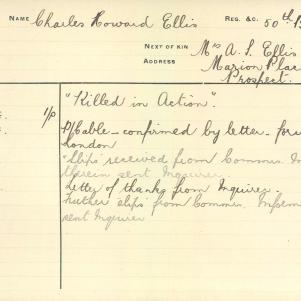 NAME Charles Howard Ellis REG. &C. 50th B
NEXT OF KIN Mrs A. S. Ellis
ADDRESS Marion Plac
Prospect.
"Killed in Action".
1/0 Pf Cable - confirmed by letter. fors
London
"Slips" received from Commrs. In
therein sent Inquirer.
Letter of thanks from Inquirer.
Further slips from Commrs. Inform
sent Inquirer